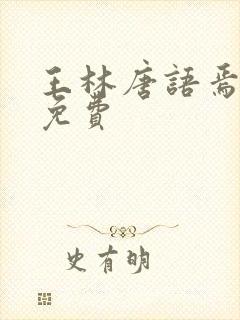 王林唐語焉
免費
史有明